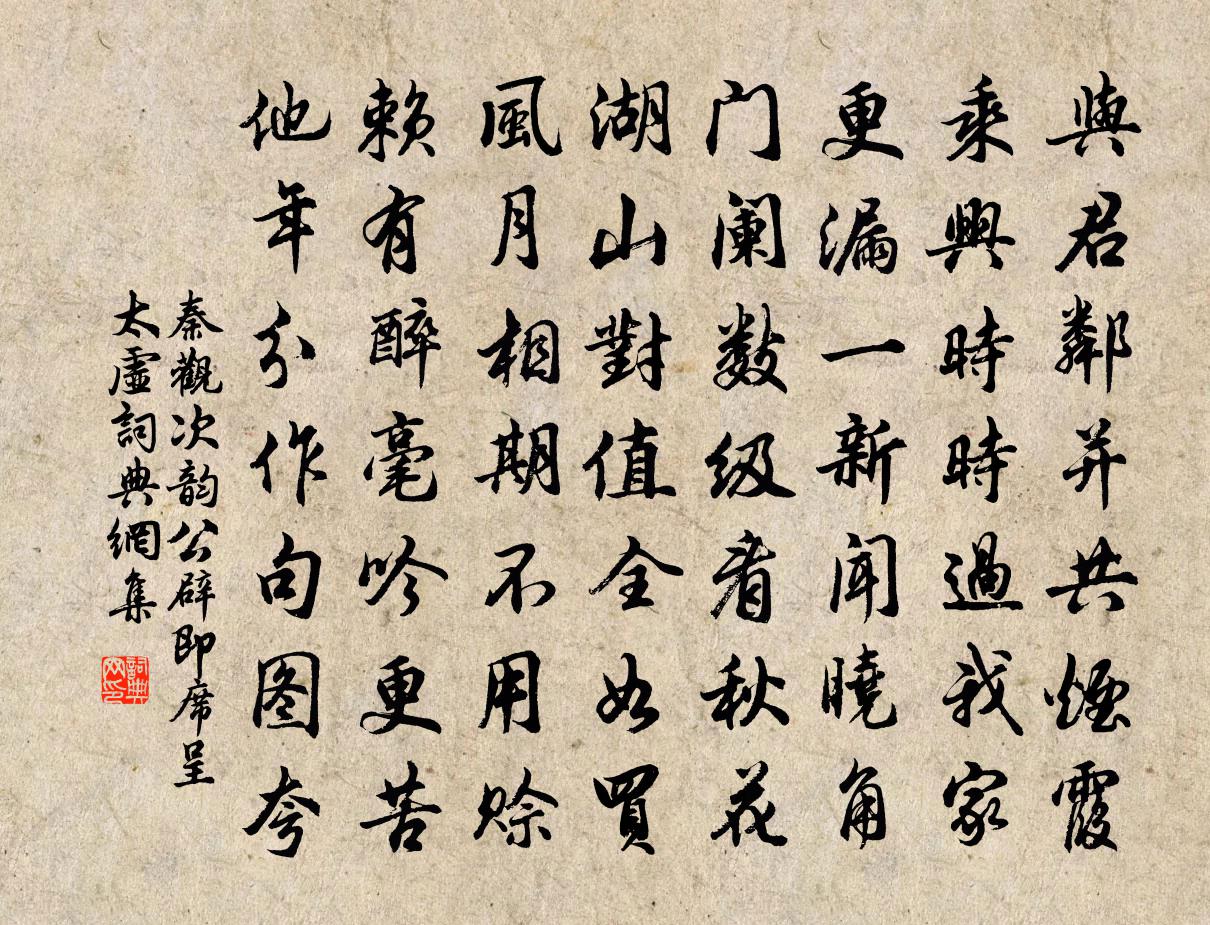 與君鄰并共煙霞
乘興時時過我家
更漏一新聞曉角
门阑数级看秋花
湖山對值全如買
風月相期不用賒
赖有醉毫吟更苦
他年分作句图夸
秦觀次韵公辟即席呈
太虛詞典網集
詞典
网印